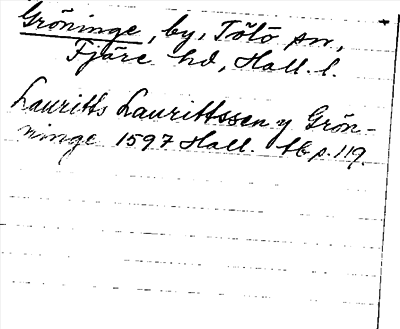 Gröninge, by, Tölö sn,
Fjäre hd, Hall. l.
Lauritts Laurittssen y Grön-
ninge 1597 Hall. tb p. 119.